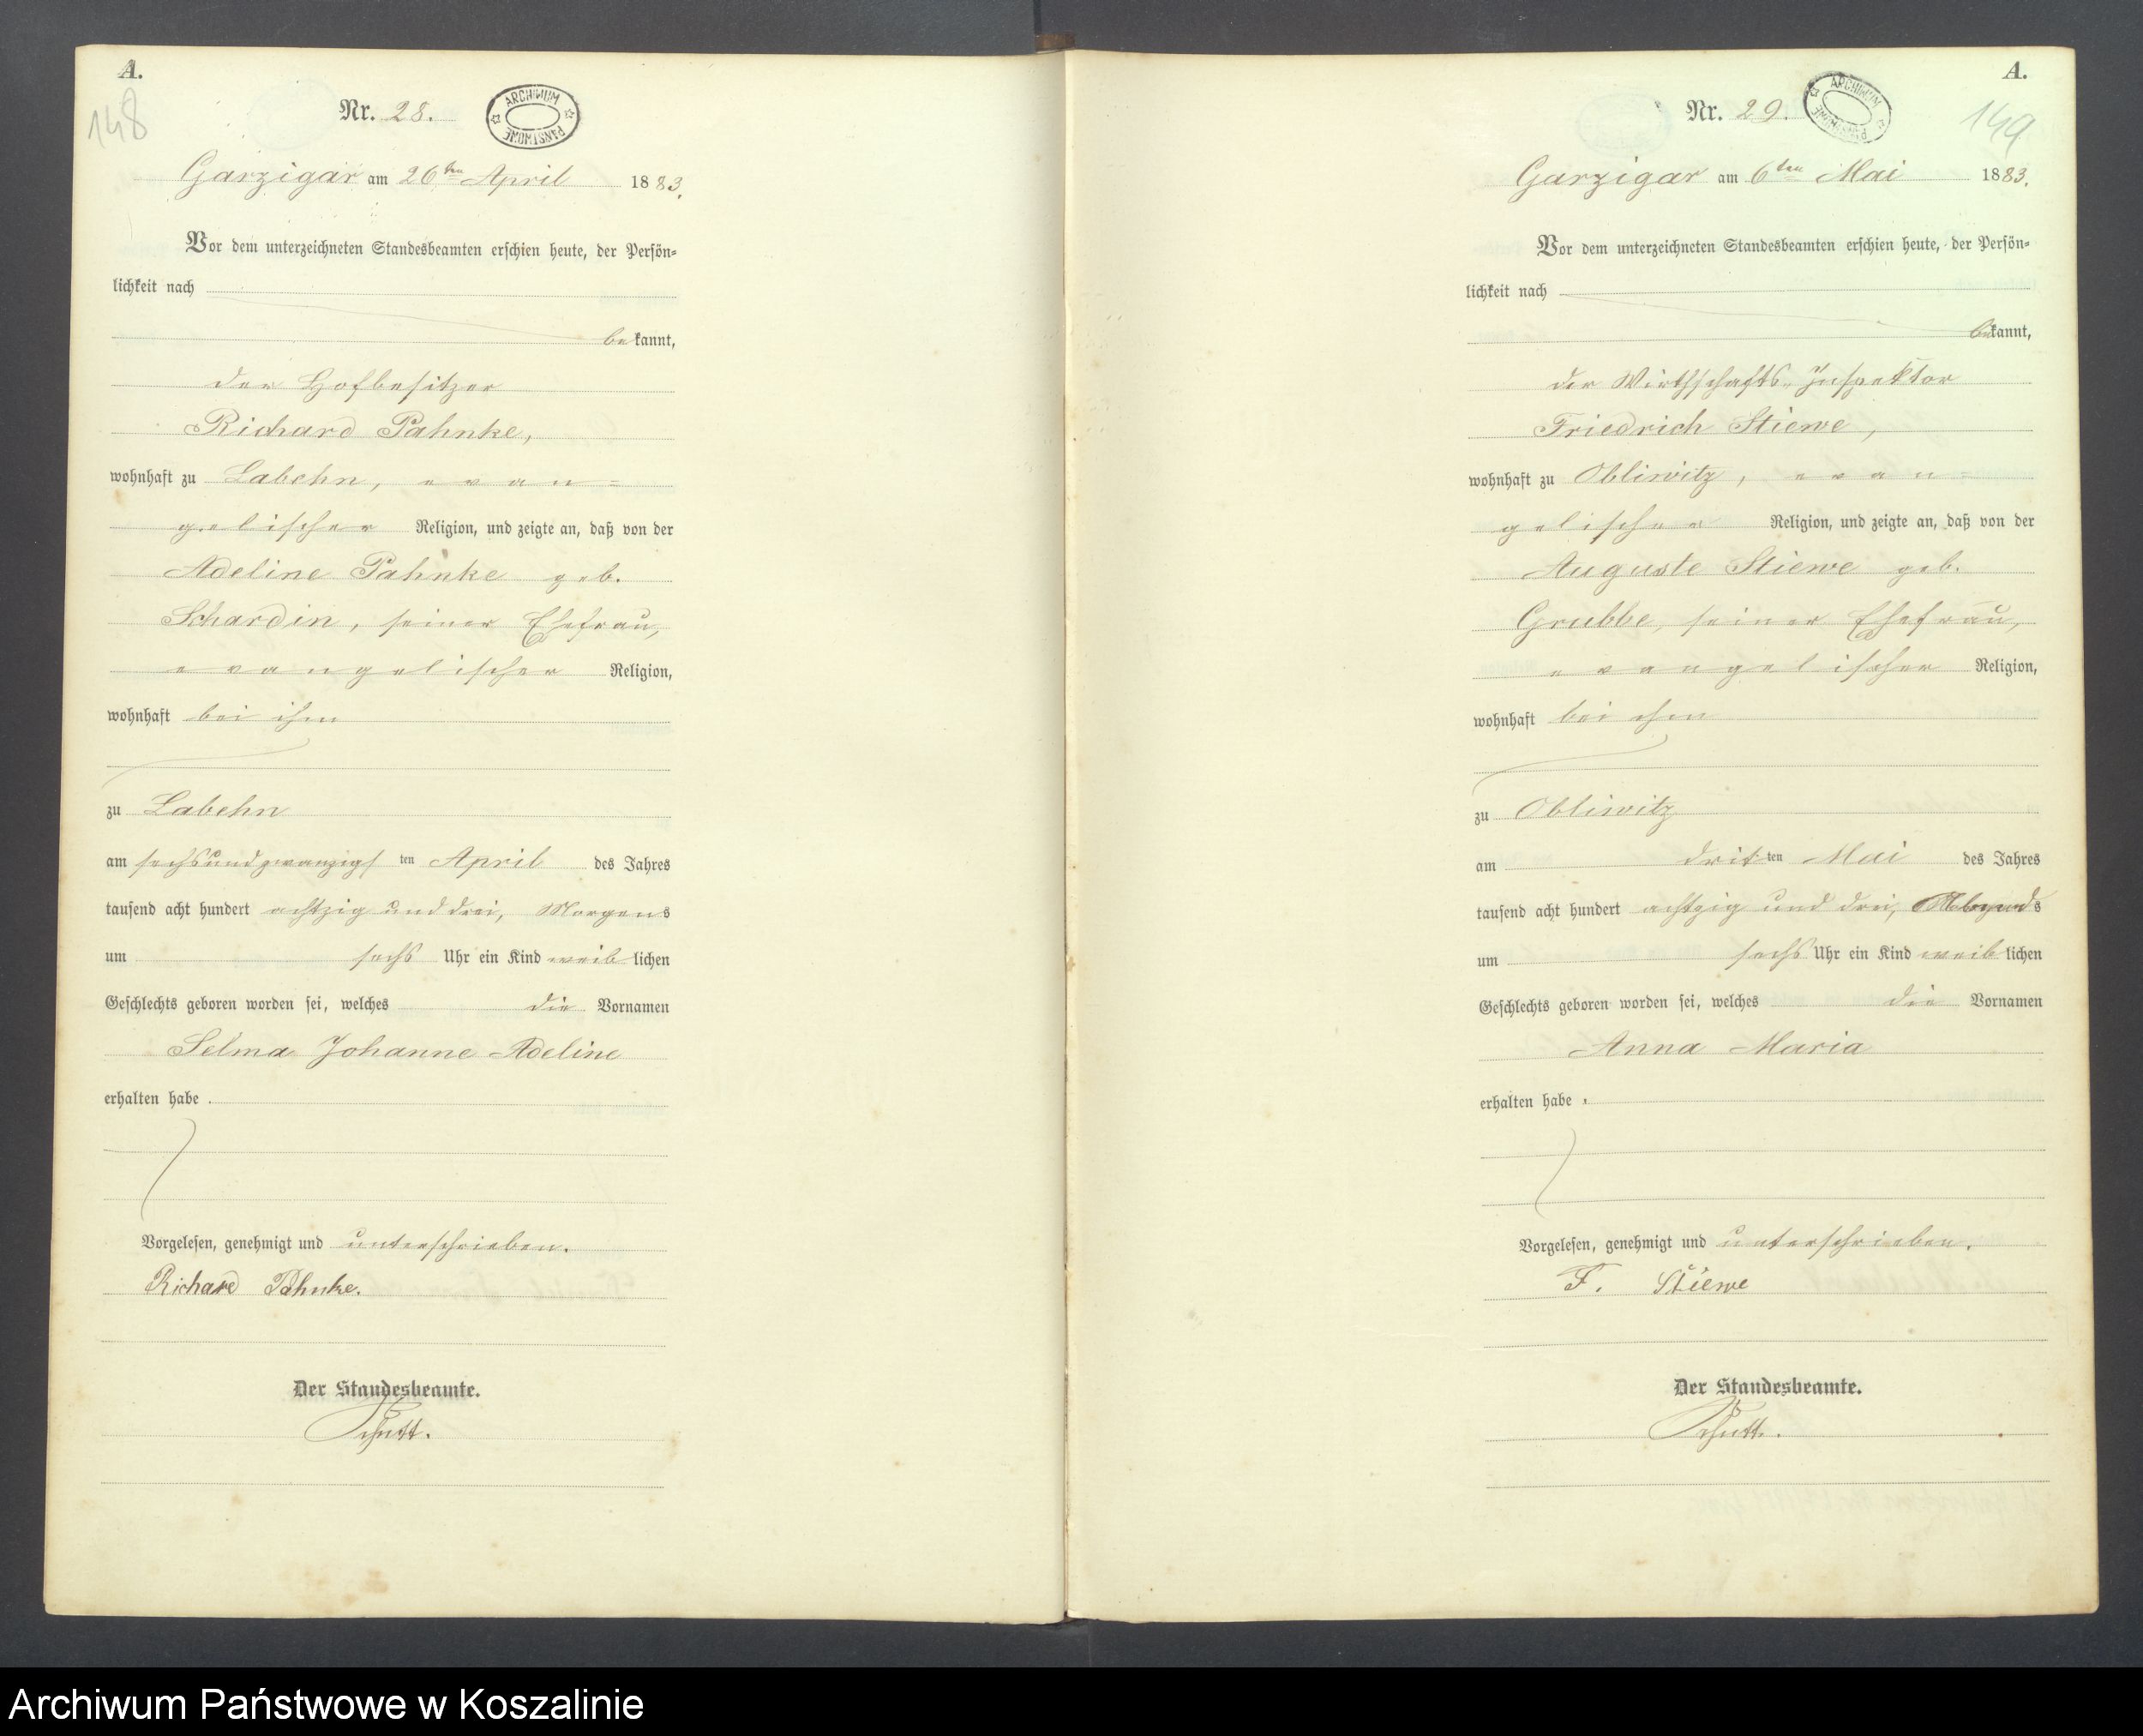 A.
148
Nr. 28.
ARCHIWUM PAŃSTWOWE
Garzigar am 26ten April 1883.
Vor dem unterzeichneten Standesbeamten erschien heute, der Persön-
lichkeit nach
bekannt,
der Hofbesitzer
Richard Pahnke,
wohnhaft zu Labehn, evan-
gelischer Religion, und zeigte an, daß von der
Adeline Pahnke geb.
Schardin, seiner Ehefrau,
evangelischer Religion,
wohnhaft bei ihm
zu Labehn
am sechsundzwanzigsten April des Jahres
tausend acht hundert achtzig und drei, Morgens
um sechs Uhr ein Kind weiblichen
Geschlechts geboren worden sei, welches die Vornamen
Selma Johanne Adeline
erhalten habe.
Vorgelesen, genehmigt und unterschrieben.
Richard Pahnke.
Der Standesbeamte.
Schutt.
A.
149
Nr. 29.
ARCHIWUM PAŃSTWOWE
Garzigar am 6ten Mai 1883.
Vor dem unterzeichneten Standesbeamten erschien heute, der Persön-
lichkeit nach
bekannt,
der Wirthschafts-Inspektor
Friedrich Stiewe,
wohnhaft zu Obliwitz, evan-
gelischer Religion, und zeigte an, daß von der
Auguste Stiewe geb.
Grubbe, seiner Ehefrau,
evangelischer Religion,
wohnhaft bei ihm
zu Obliwitz
am dritten Mai des Jahres
tausend acht hundert achtzig und drei,
um sechs Uhr ein Kind weiblichen
Geschlechts geboren worden sei, welches die Vornamen
Anna Maria
erhalten habe.
Vorgelesen, genehmigt und unterschrieben.
F. Stiewe
Der Standesbeamte.
Schutt.
Archiwum Państwowe w Koszalinie